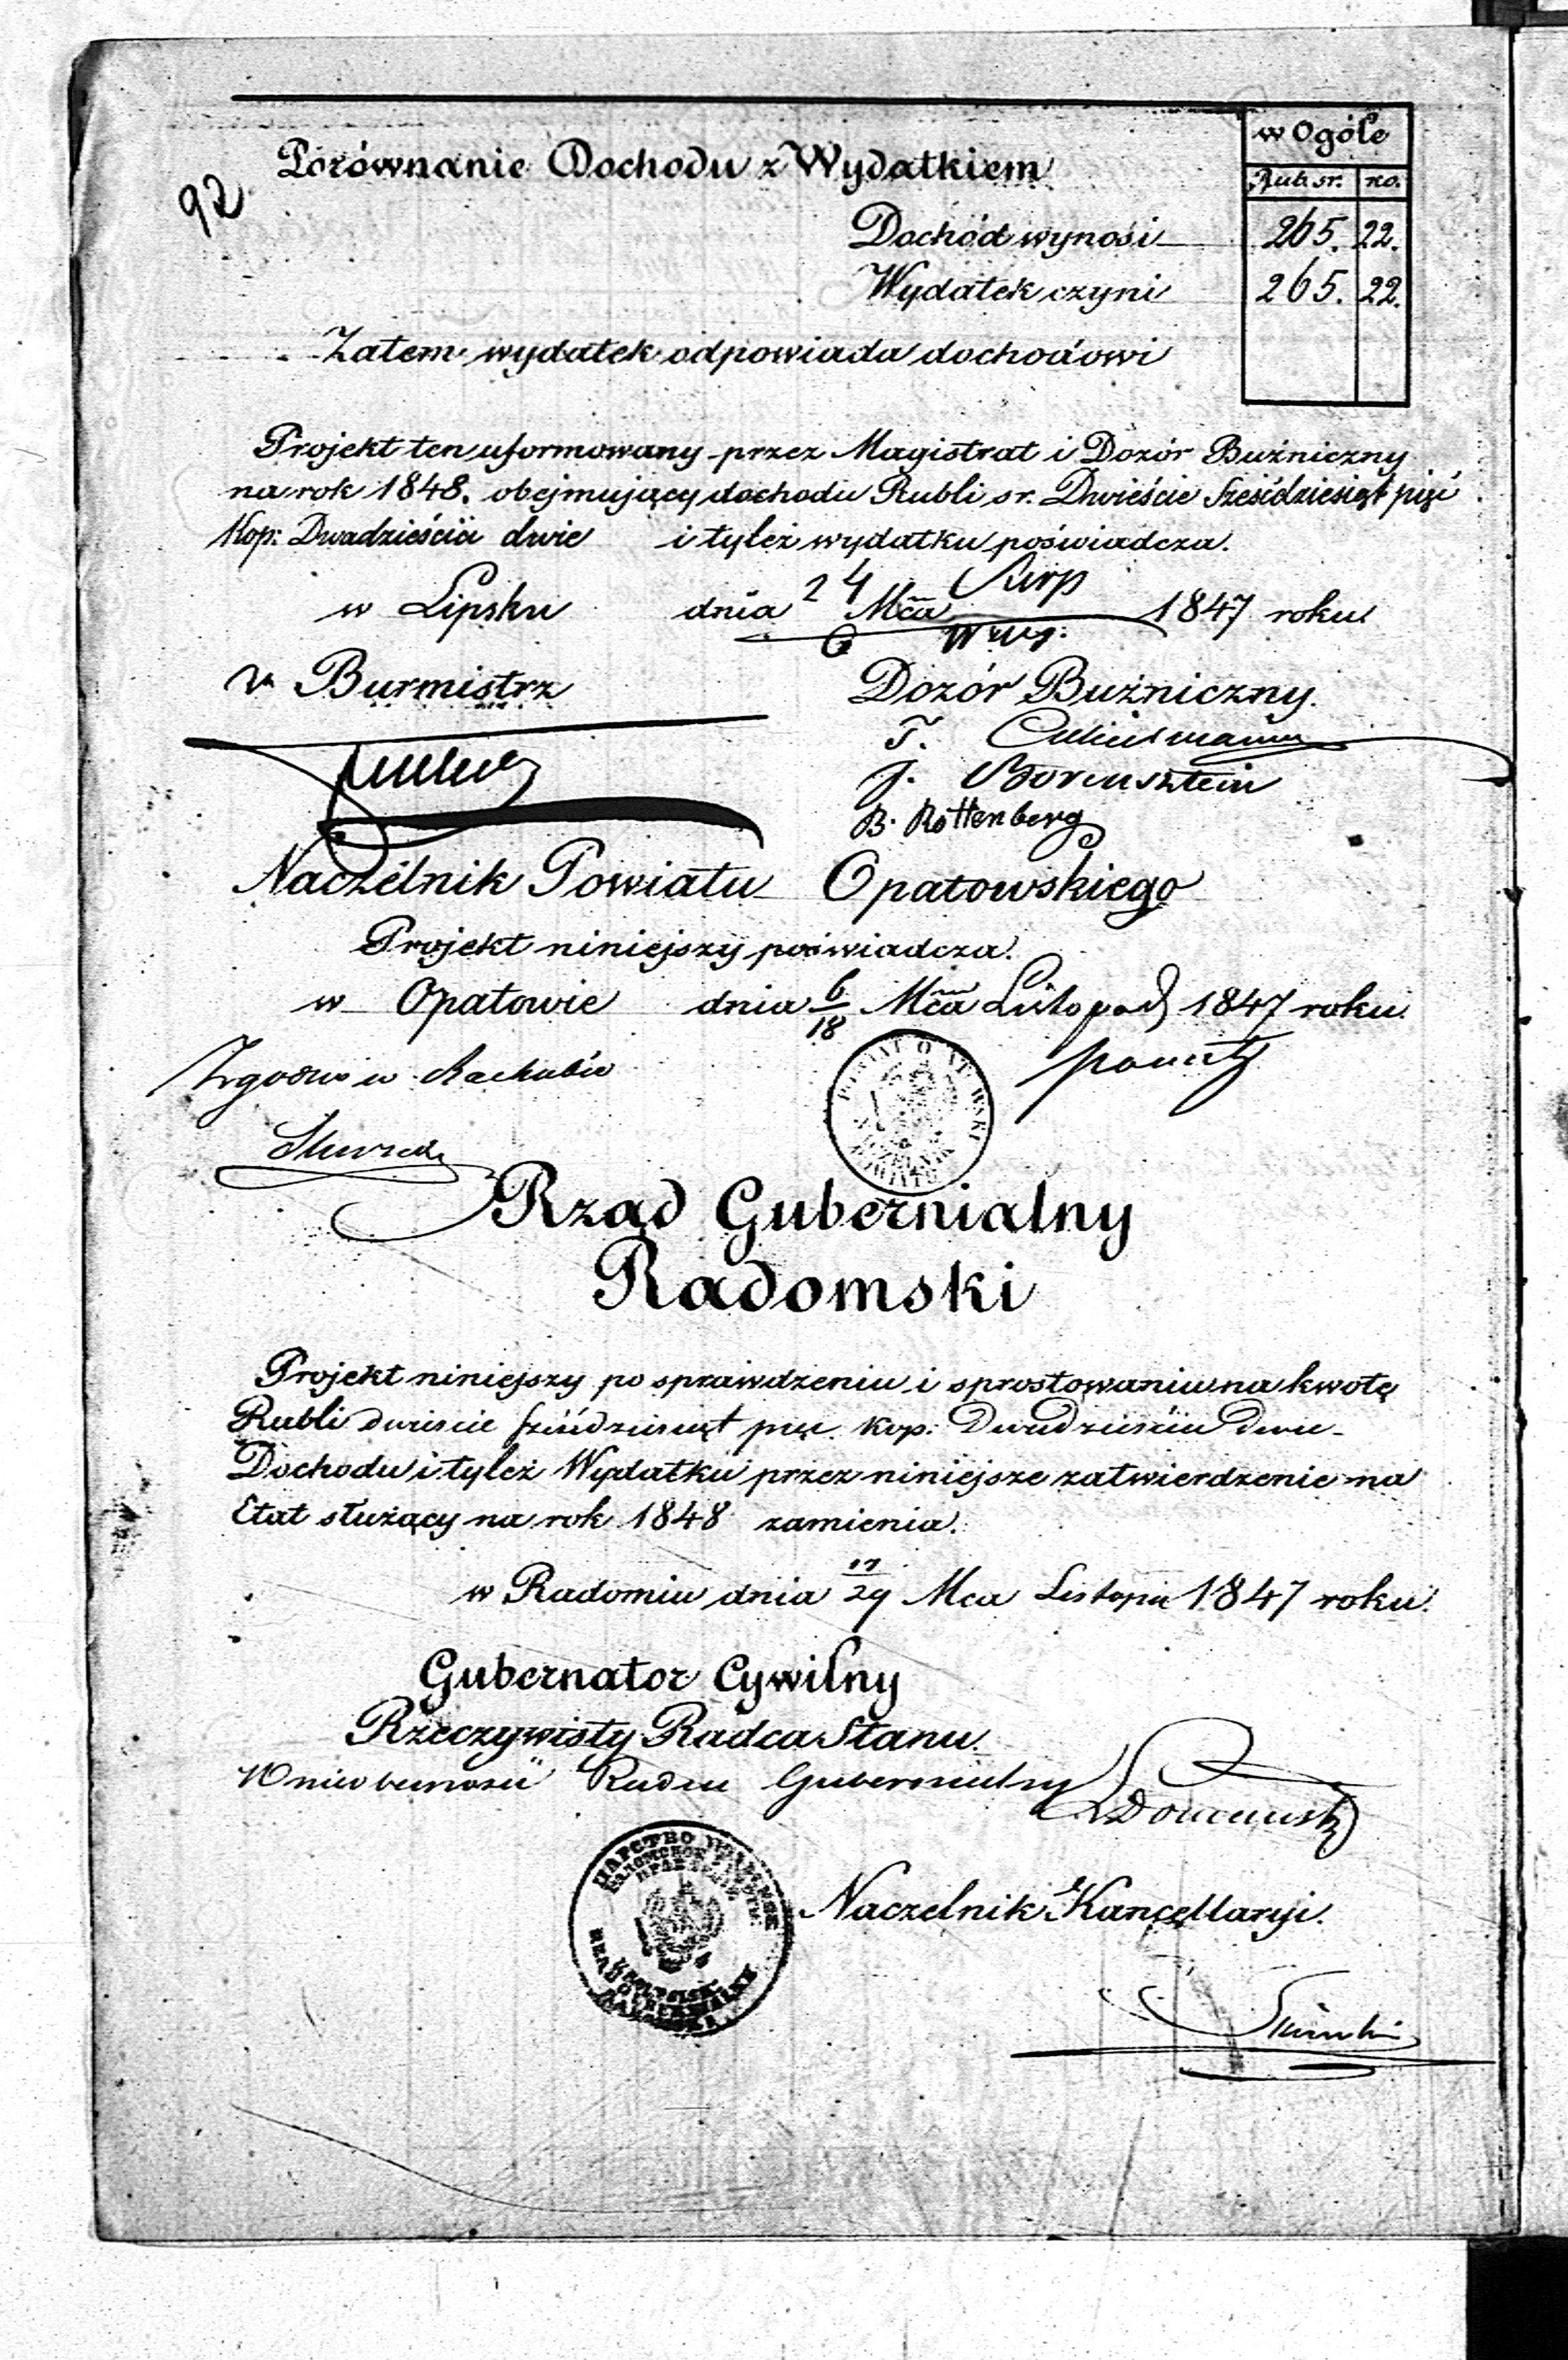 w Ogóle
Rub sr. ko.
92
Porównanie Dochodu z Wydatkiem
Dochód wynosi 265. 22.
Wydatek czyni 265. 22.
Zatem wydatek odpowiada dochodowi
Projekt ten uformowany przez Magistrat i Dozór Bużniczny
na rok 1848. obejmujący dochodu Rubli sr. Dwieście Sześćdziesiąt pięć
Kop: Dwadzieścia dwie i tyleż wydatku poświadcza.
w Lipsku dnia 24 Mca Sierp 1847 roku
Burmistrz
Dozór Bużniczny.
J. Borensztein
B. Rottenberg
Naczelnik Powiatu Opatowskiego
Projekt niniejszy poświadcza.
w Opatowie dnia 6/18 Mca Listopad 1847 roku
Zgodno w Rachubie
Rząd Gubernialny
Radomski
Projekt niniejszy po sprawdzeniu i sprostowaniu na kwotę
Rubli dwieście sześćdziesiąt pięć Kop: Dwadzieścia dwie
Dochodu i tyleż Wydatku przez niniejsze zatwierdzenie na
Etat służący na rok 1848 zamienia.
w Radomiu dnia 17/29 Mca Listopa 1847 roku.
Gubernator Cywilny
Rzeczywisty Radca Stanu.
W nieobecności Radca Gubernialny
Naczelnik Kancellaryi.